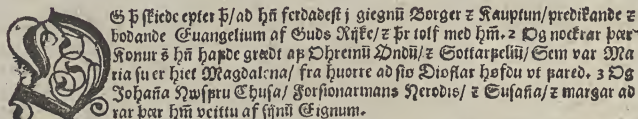 OG þ skiedc epter þ/ad hñ ferdadest j giegnū Borger ⁊ Kauptun/predikande ⁊
bodande Euangelium af Guds Rijke/⁊ þr tolf med hm̄.2 Og nockrar þær
Konur s̄ hñ hapde grædt ap Ohreinū Ondū/⁊ Sottarpeliū/Sem var Ma
ria su er hiet Magdalena/ fra huorre ad sio Dioflar høfdu vt pared. 3 Og
Johañа Hwspru Chusa/ Forsionarmans Herodis/ ⁊ Susaña/⁊ margar ad
rar þær hm̄ veittu af sijnū Eignum.